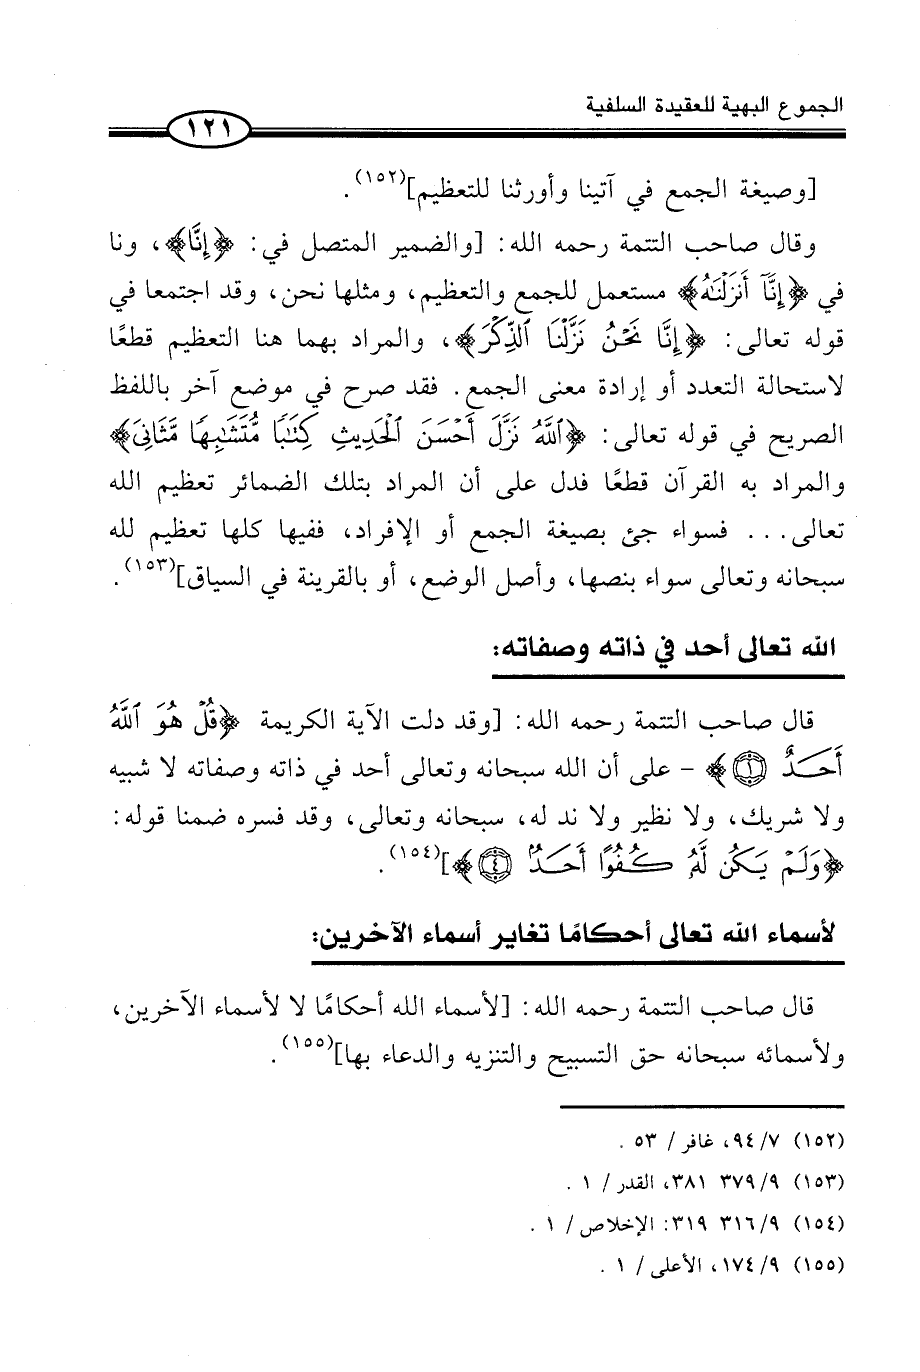 الجموع البهية للعقيدة السلفية
١٢١
[وصيغة الجمع في آتينا وأورثنا للتعظيم](١٥٢).
وقال صاحب التتمة رحمه الله: [والضمير المتصل في: ﴿إِنَّا﴾، ونا
في ﴿إِنَّآ أَنزَلْنَٰهُ﴾ مستعمل للجمع والتعظيم، ومثلها نحن، وقد اجتمعا في
قوله تعالى: ﴿إِنَّا نَحْنُ نَزَّلْنَا ٱلذِّكْرَ﴾، والمراد بهما هنا التعظيم قطعًا
لاستحالة التعدد أو إرادة معنى الجمع. فقد صرح في موضع آخر باللفظ
الصريح في قوله تعالى: ﴿ٱللَّهُ نَزَّلَ أَحْسَنَ ٱلْحَدِيثِ كِتَٰبًا مُّتَشَٰبِهًا مَّثَانِىَ﴾
والمراد به القرآن قطعًا فدل على أن المراد بتلك الضمائر تعظيم الله
تعالى... فسواء جئ بصيغة الجمع أو الإفراد، ففيها كلها تعظيم لله
سبحانه وتعالى سواء بنصها، وأصل الوضع، أو بالقرينة في السياق](١٥٣).
الله تعالى أحد في ذاته وصفاته:
قال صاحب التتمة رحمه الله: [وقد دلت الآية الكريمة ﴿قُلْ هُوَ ٱللَّهُ
أَحَدٌ ١﴾ - على أن الله سبحانه وتعالى أحد في ذاته وصفاته لا شبيه
ولا شريك، ولا نظير ولا ند له، سبحانه وتعالى، وقد فسره ضمنا قوله:
﴿وَلَمْ يَكُن لَّهُۥ كُفُوًا أَحَدٌۢ ٤﴾](١٥٤).
لأسماء الله تعالى أحكامًا تغاير أسماء الآخرين:
قال صاحب التتمة رحمه الله: [لأسماء الله أحكامًا لا لأسماء الآخرين،
ولأسمائه سبحانه حق التسبيح والتنزيه والدعاء بها](١٥٥).
(١٥٢) ٩٤/٧، غافر / ٥٣ .
(١٥٣) ٣٧٩/٩ ٣٨١، القدر / ١ .
(١٥٤) ٣١٦/٩ ٣١٩: الإخلاص / ١ .
(١٥٥) ١٧٤/٩، الأعلى / ١ .